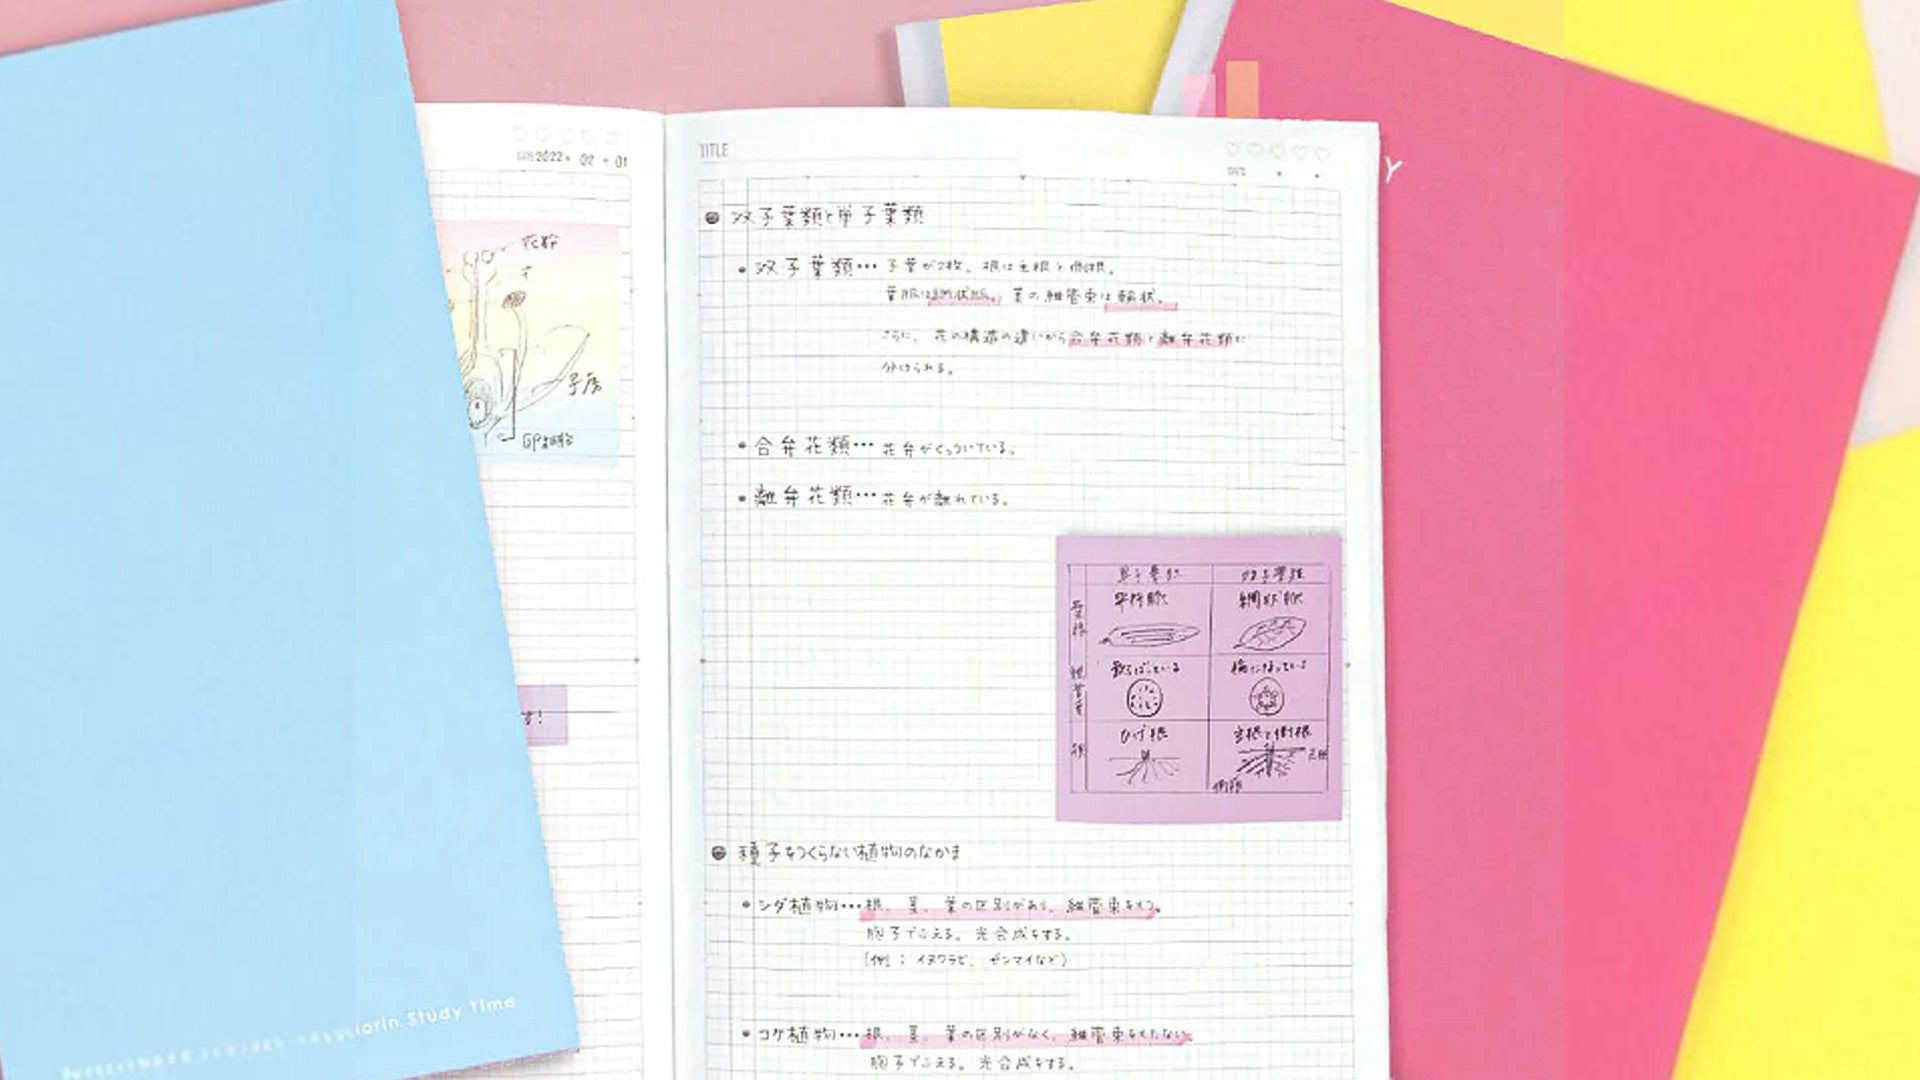 2022. 02 . 01
花粉
子房
TITLE
DATE
● 双子葉類と単子葉類
・双子葉類… 子葉が2枚。根は主根と側根。
葉脈は網状脈。茎の維管束は輪状。
さらに、花の構造の違いから合弁花類と離弁花類に
分けられる。
・合弁花類… 花弁がくっついている。
・離弁花類… 花弁が離れている。
単子葉類 双子葉類
平行脈 網状脈
葉脈
散らばっている 輪になっている
維管束
ひげ根 主根と側根
根
主根
側根
● 種子をつくらない植物のなかま
・シダ植物… 根、茎、葉の区別があり、維管束をもつ。
胞子でふえる。光合成をする。
(例:イヌワラビ、ゼンマイなど)
・コケ植物… 根、茎、葉の区別がなく、維管束をもたない。
胞子でふえる。光合成をする。
Study Time
Y